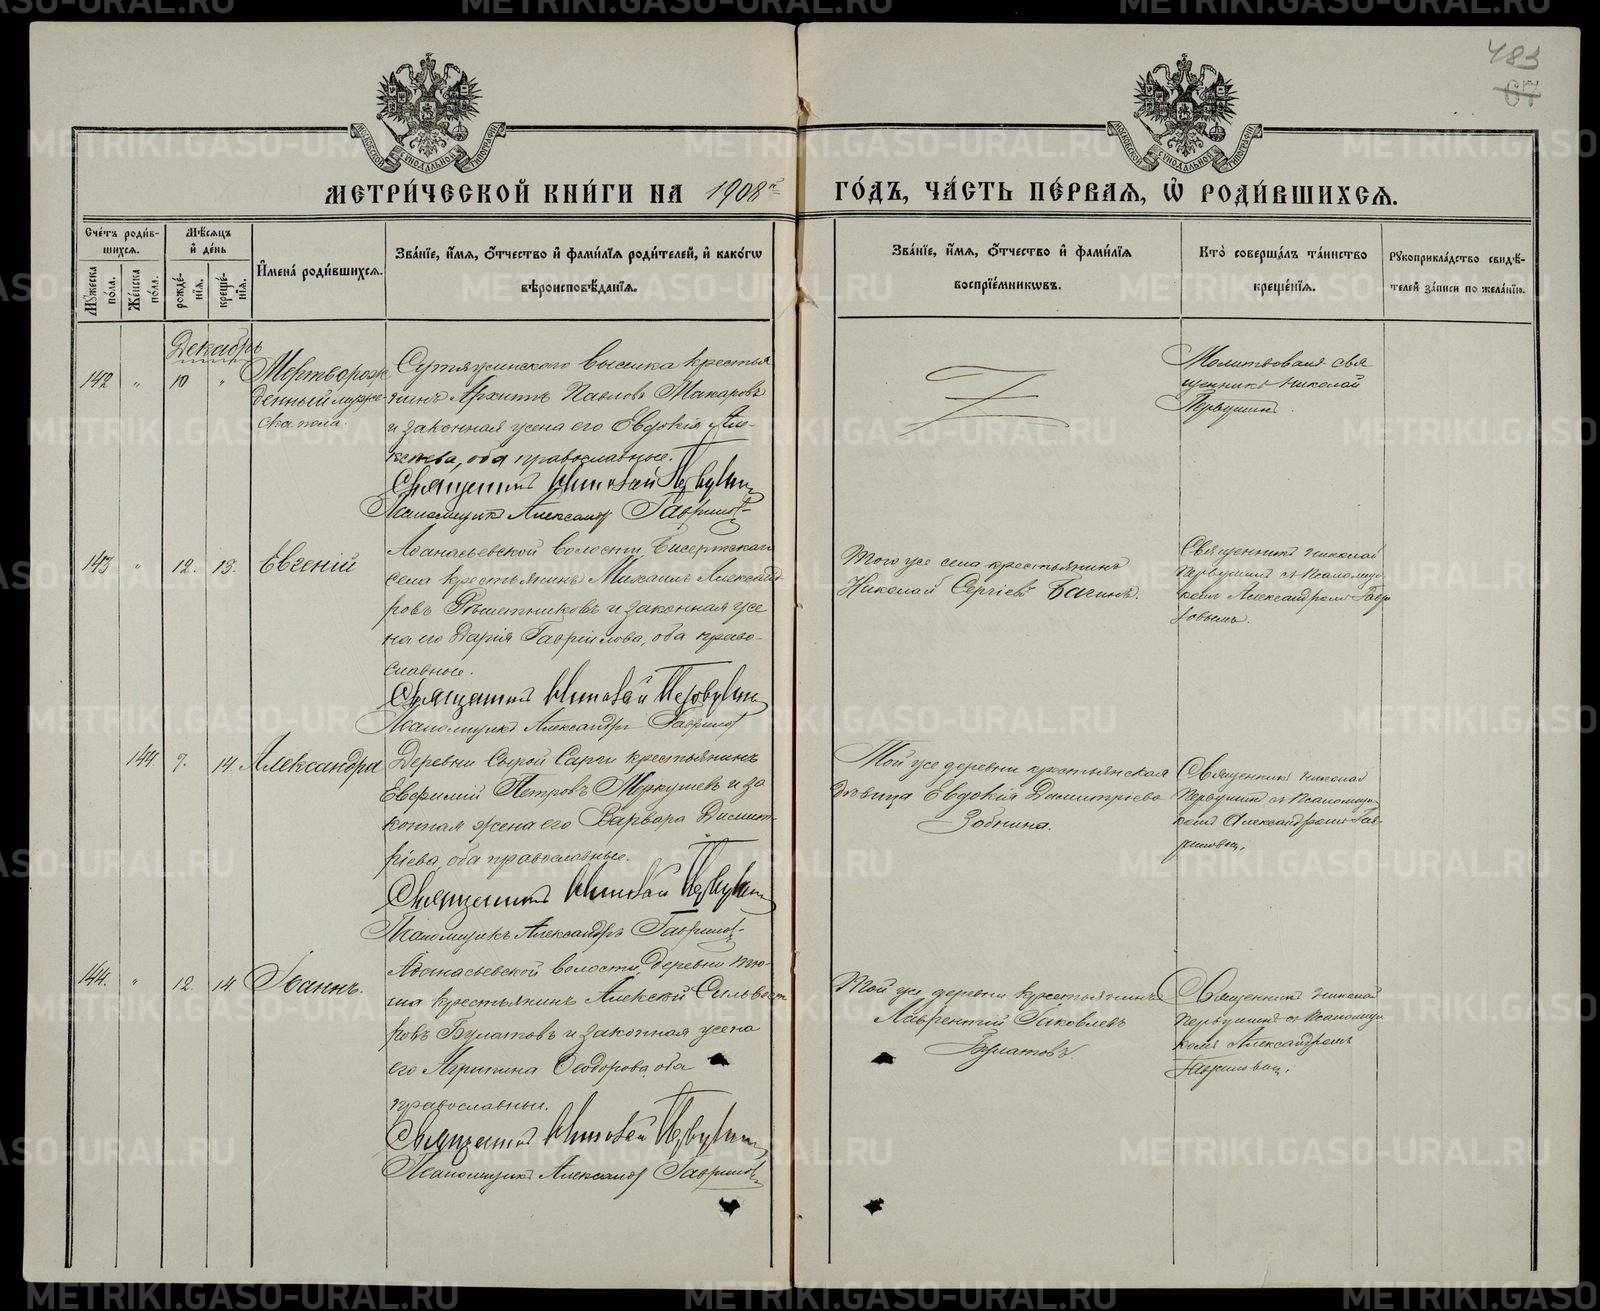 483
67
МЕТРИ́ЧЕСКОЙ КНИ́ГИ НА 1908й
ГО́ДЪ, ЧА́СТЬ ПЕ́РВАЯ, Ѡ РОДИ́ВШИХСЯ.
Сче́тъ роди́вшихся.
Му́жеска по́ла.
Же́нска по́ла.
Мѣ́сяцъ и҆ де́нь
рожде́нїя.
креще́нїя.
И҆мена̀ роди́вшихся.
Зва́нїе, и҆́мя, ѻ҆́тчество и҆ фами́лїя роди́телей, и҆ како́гѡ
вѣроисповѣ́данїя.
Зва́нїе, и҆́мя, ѻ҆́тчество и҆ фами́лїя
воспрїе́мникѡвъ.
Кто̀ соверша́лъ та́инство
креще́нїя.
Рꙋкоприкла́дство свидѣ́-
телей за́писи по жела́нїю.
Декабрь
142 " 10 "
Мертворож
денный муже-
ска пола.
Сутяжинскаго высилка крестья
нинъ Архиппъ Павловъ Макаровъ
и законная жена его Евдокія Але-
ксѣева, оба православные.
Священникъ Николай Первушин
Псаломщикъ Александр Гаврилов
Молитвовалъ свя
щенникъ Николай
Первушинъ.
143 " 12. 13.
Евгеній
Аѳанасьевской волости, Бисертскаго
села крестьянинъ Михаилъ Александ-
ровъ Рѣшетниковъ и законная же
на его Дарія Гавріилова, оба право-
славные.
Священникъ Николай Первушин
Псаломщикъ Александръ Гаврилов
Того же села крестьянинъ
Николай Сергіевъ Багинъ.
Священникъ Николай
Первушинъ съ псаломщи-
комъ Александромъ Гаври
ловымъ.
144 9. 14
Александра
Деревни Сырой Сарги крестьянинъ
Евѳимій Петровъ Меркушевъ и за
конная жена его Варвара Димит-
ріева, оба православные.
Священникъ Николай Первушин
Псаломщикъ Александръ Гаврилов
Той же деревни крестьянская
дѣвица Евдокія Димитріева
Зобнина.
Священникъ Николай
Первушинъ съ псаломщи-
комъ Александромъ Гав-
риловы.
144. " 12. 14
Іоаннъ.
Аѳанасьевской волости, деревни Тю-
ша крестьянинъ Алексѣй Сильвест
ровъ Булатовъ и законная жена
его Агрипина Ѳеодорова, оба
православные.
Священникъ Николай Первушин
Псаломщикъ Александр Гаврилов
Той же деревни крестьянинъ
Лаврентій Іаковлевъ
Булатовъ
Священникъ Николай
Первушинъ съ псаломщи
комъ Александромъ
Гавриловы.
METRIKI.GASO-URAL.RU